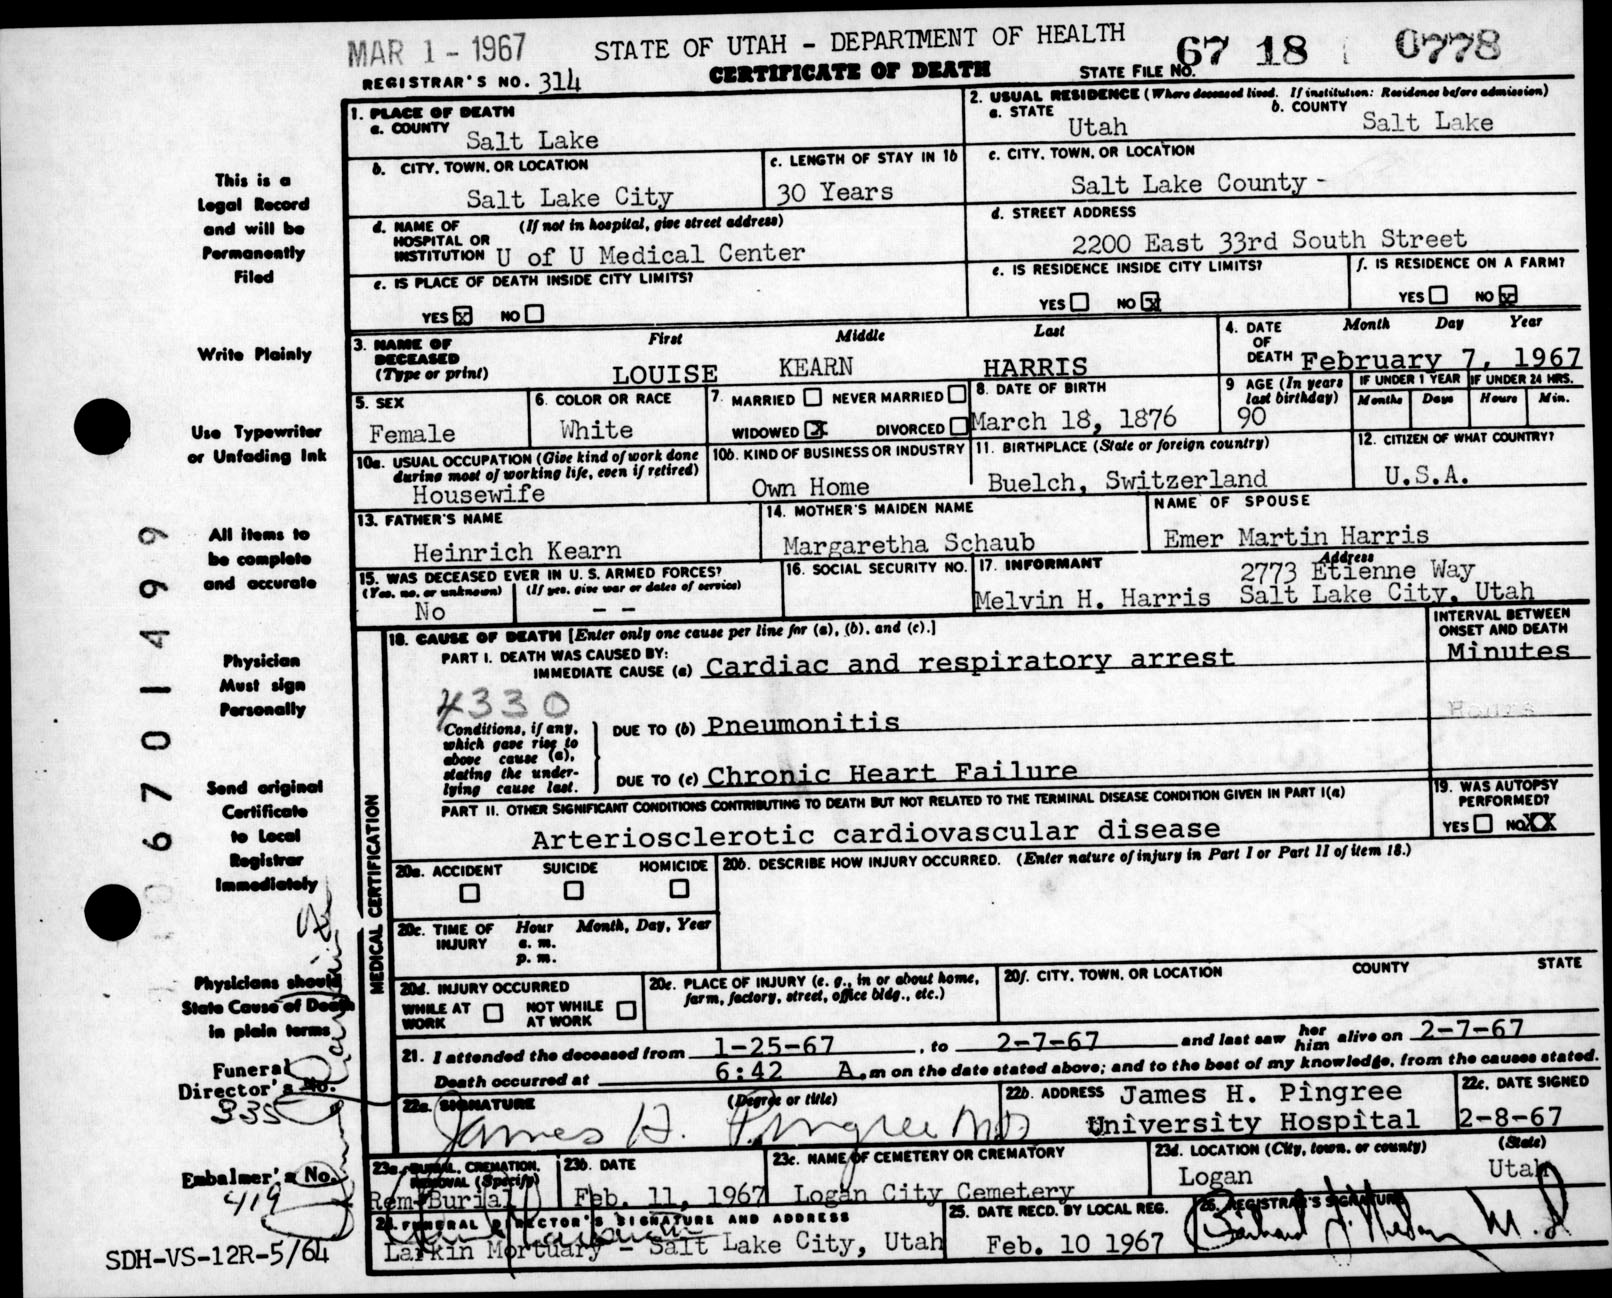 MAR 1 - 1967
STATE OF UTAH - DEPARTMENT OF HEALTH
CERTIFICATE OF DEATH
67 18 0778
REGISTRAR'S NO. 314
STATE FILE NO.
1. PLACE OF DEATH
a. COUNTY Salt Lake
2. USUAL RESIDENCE (Where deceased lived. If institution: Residence before admission)
a. STATE Utah
b. COUNTY Salt Lake
b. CITY, TOWN, OR LOCATION
Salt Lake City
c. LENGTH OF STAY IN 1b
30 Years
c. CITY, TOWN, OR LOCATION
Salt Lake County -
d. NAME OF HOSPITAL OR INSTITUTION (If not in hospital, give street address)
U of U Medical Center
d. STREET ADDRESS
2200 East 33rd South Street
e. IS PLACE OF DEATH INSIDE CITY LIMITS?
YES X NO
e. IS RESIDENCE INSIDE CITY LIMITS?
YES NO X
f. IS RESIDENCE ON A FARM?
YES NO X
3. NAME OF DECEASED (Type or print)
First Middle Last
LOUISE KEARN HARRIS
4. DATE OF DEATH
Month Day Year
February 7, 1967
5. SEX
Female
6. COLOR OR RACE
White
7. MARRIED NEVER MARRIED
WIDOWED X DIVORCED
8. DATE OF BIRTH
March 18, 1876
9 AGE (In years last birthday)
90
IF UNDER 1 YEAR
Months Days
IF UNDER 24 HRS.
Hours Min.
10a. USUAL OCCUPATION (Give kind of work done during most of working life, even if retired)
Housewife
10b. KIND OF BUSINESS OR INDUSTRY
Own Home
11. BIRTHPLACE (State or foreign country)
Buelch, Switzerland
12. CITIZEN OF WHAT COUNTRY?
U.S.A.
13. FATHER'S NAME
Heinrich Kearn
14. MOTHER'S MAIDEN NAME
Margaretha Schaub
NAME OF SPOUSE
Emer Martin Harris
15. WAS DECEASED EVER IN U. S. ARMED FORCES?
(Yes, no, or unknown) (If yes, give war or dates of service)
No - -
16. SOCIAL SECURITY NO.
17. INFORMANT Address
Melvin H. Harris
2773 Etienne Way
Salt Lake City, Utah
MEDICAL CERTIFICATION
18. CAUSE OF DEATH [Enter only one cause per line for (a), (b), and (c).]
INTERVAL BETWEEN ONSET AND DEATH
PART I. DEATH WAS CAUSED BY:
IMMEDIATE CAUSE (a) Cardiac and respiratory arrest
Minutes
4330
Conditions, if any, which gave rise to above cause (a), stating the underlying cause last.
DUE TO (b) Pneumonitis
Hours
DUE TO (c) Chronic Heart Failure
PART II. OTHER SIGNIFICANT CONDITIONS CONTRIBUTING TO DEATH BUT NOT RELATED TO THE TERMINAL DISEASE CONDITION GIVEN IN PART I(a)
Arteriosclerotic cardiovascular disease
19. WAS AUTOPSY PERFORMED?
YES NO XX
20a. ACCIDENT SUICIDE HOMICIDE
20b. DESCRIBE HOW INJURY OCCURRED. (Enter nature of injury in Part I or Part II of item 18.)
20c. TIME OF INJURY
Hour Month, Day, Year
a. m.
p. m.
20d. INJURY OCCURRED
WHILE AT WORK NOT WHILE AT WORK
20e. PLACE OF INJURY (e. g., in or about home, farm, factory, street, office bldg., etc.)
20f. CITY, TOWN, OR LOCATION COUNTY STATE
21. I attended the deceased from 1-25-67, to 2-7-67 and last saw her him alive on 2-7-67
Death occurred at 6:42 A.m on the date stated above; and to the best of my knowledge, from the causes stated.
22a. SIGNATURE (Degree or title)
James H. Pingree MD
22b. ADDRESS James H. Pingree
University Hospital
22c. DATE SIGNED
2-8-67
23a. BURIAL, CREMATION, REMOVAL (Specify)
Rem-Burial
23b. DATE
Feb. 11, 1967
23c. NAME OF CEMETERY OR CREMATORY
Logan City Cemetery
23d. LOCATION (City, town, or county) (State)
Logan Utah
24. FUNERAL DIRECTOR'S SIGNATURE AND ADDRESS
Larkin Mortuary - Salt Lake City, Utah
25. DATE RECD. BY LOCAL REG.
Feb. 10 1967
26. REGISTRAR'S SIGNATURE
M.D
This is a
Legal Record
and will be
Permanently
Filed
Write Plainly
Use Typewriter
or Unfading Ink
All items to
be complete
and accurate
Physician
Must sign
Personally
Send original
Certificate
to Local
Registrar
Immediately
Physicians should
State Cause of Death
in plain terms
Funeral
Director's No.
335
Embalmer's No.
419
SDH-VS-12R-5/64
6701499